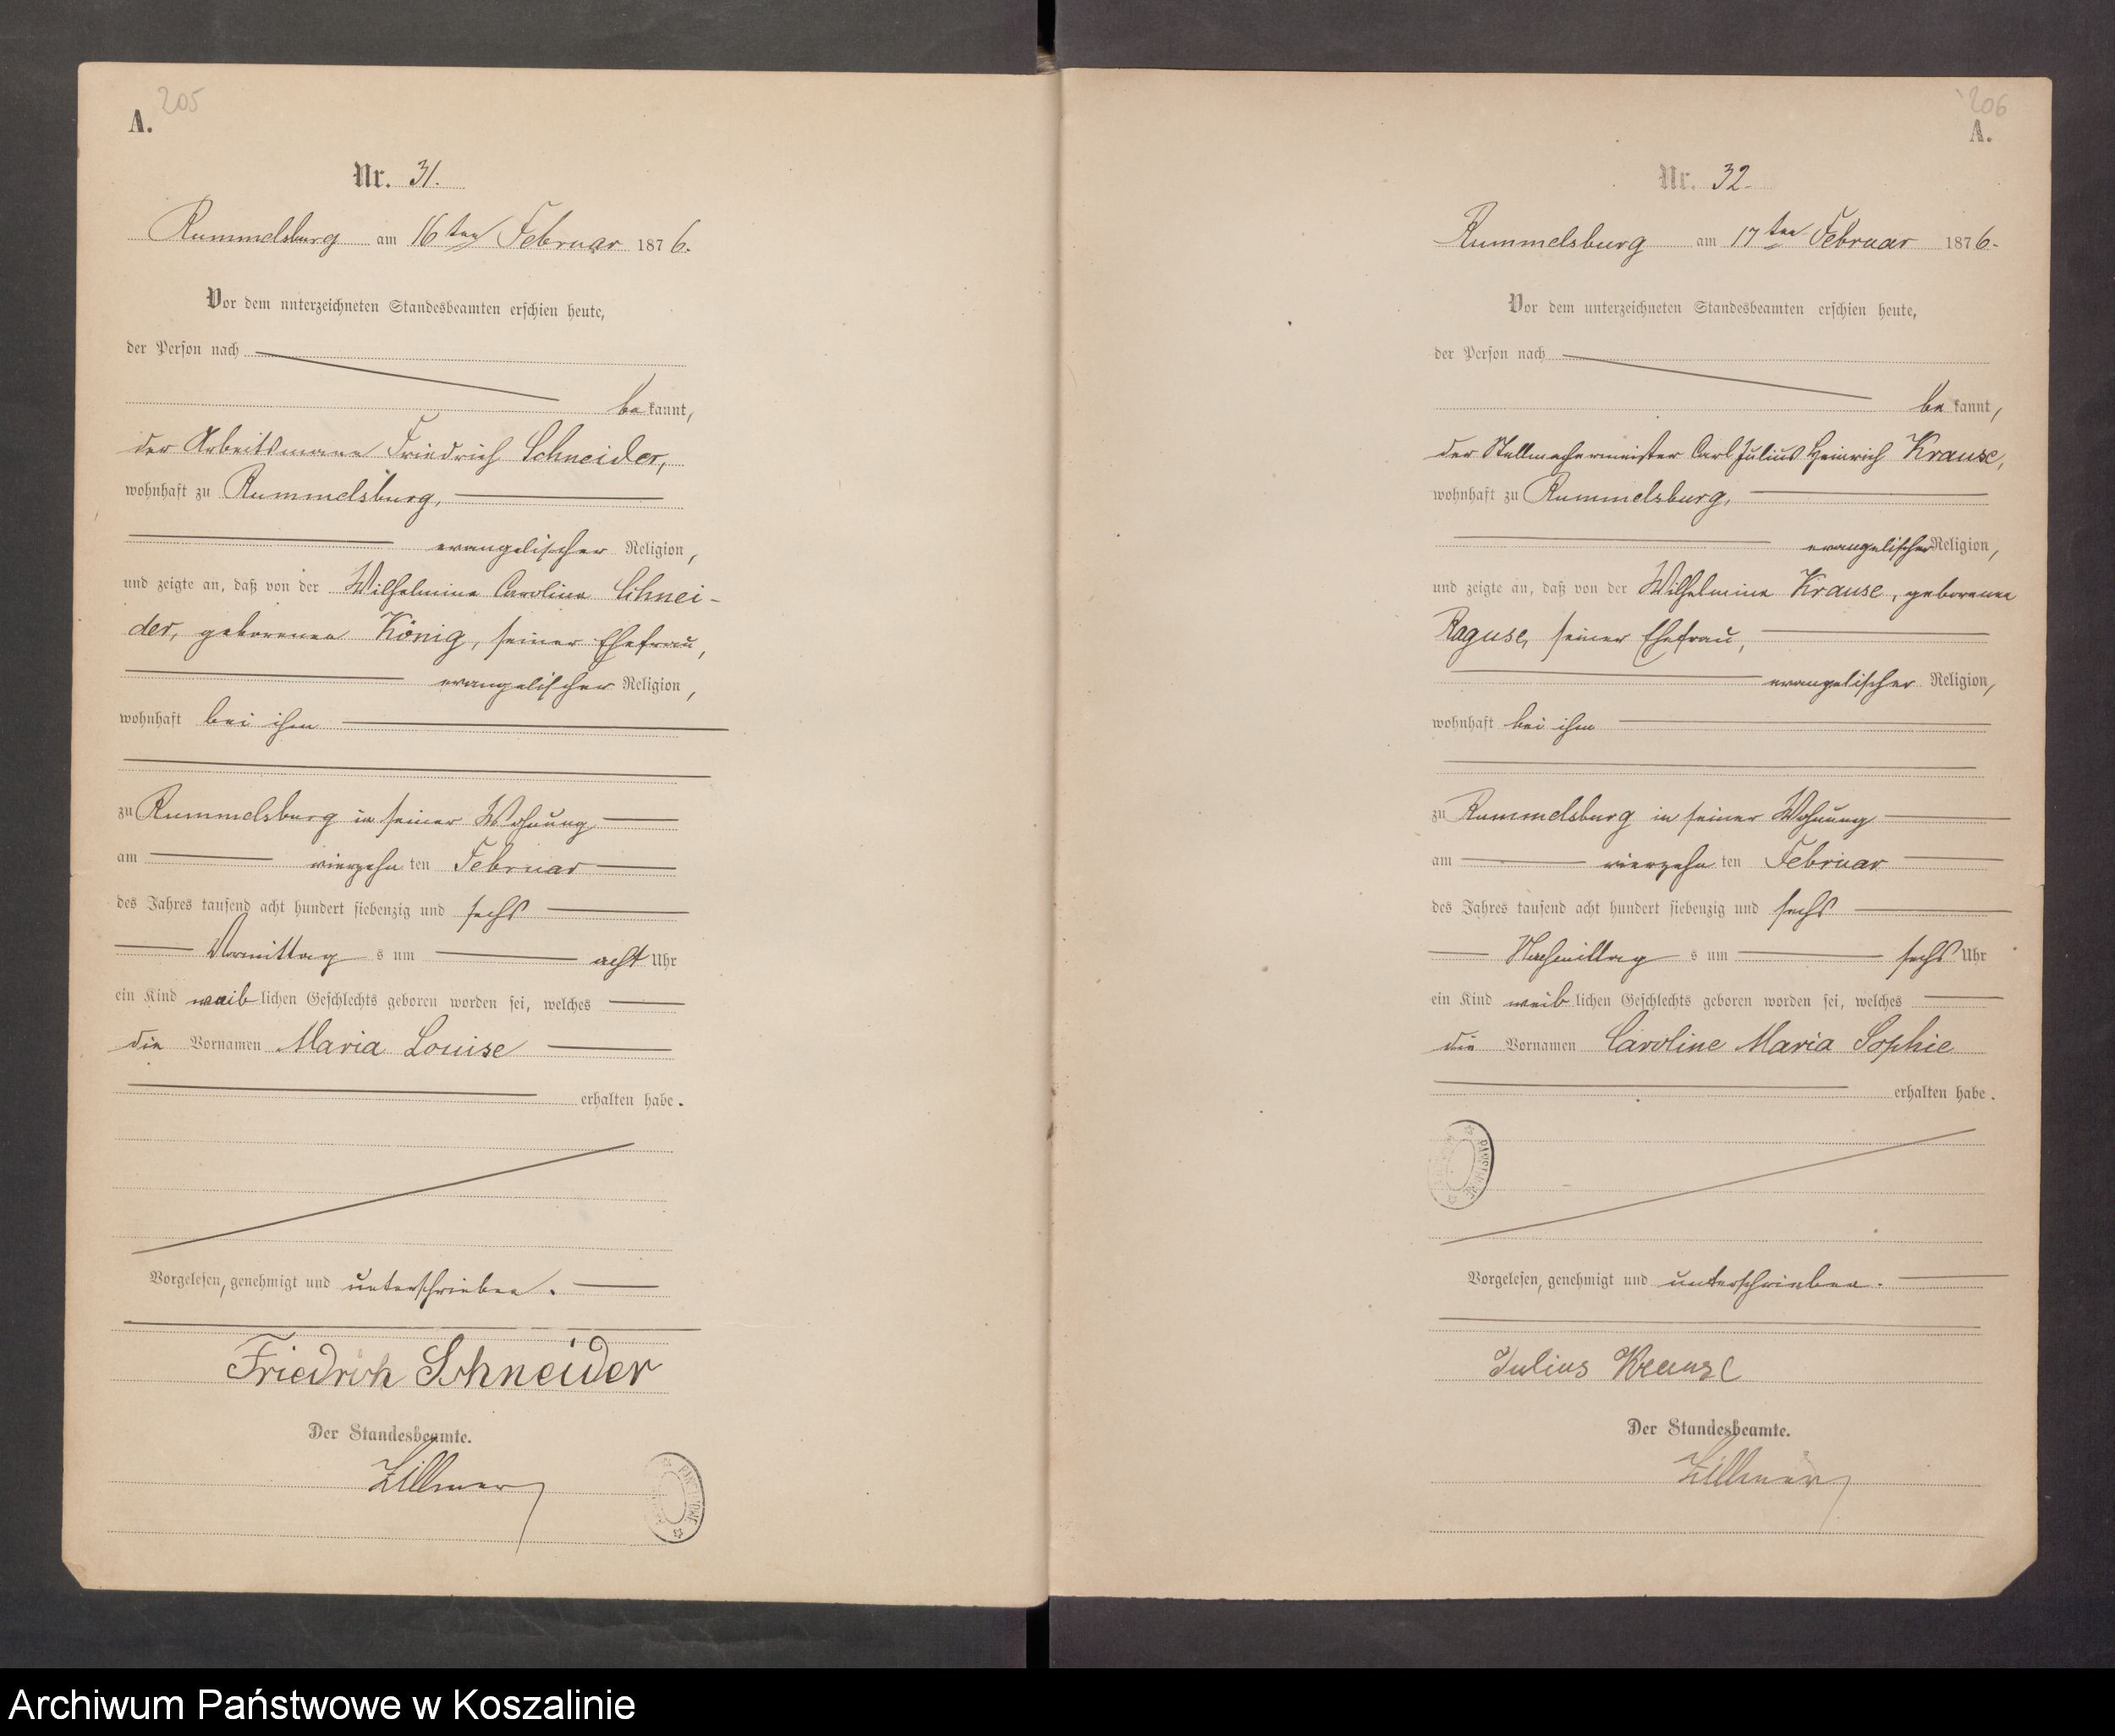 205
A.
Nr. 31.
Rummelsburg am 16ten Februar 1876.
Vor dem unterzeichneten Standesbeamten erschien heute,
der Person nach
bekannt,
der Arbeitsmann Friedrich Schneider,
wohnhaft zu Rummelsburg,
evangelischer Religion,
und zeigte an, daß von der Wilhelmine Caroline Schnei-
der, geborenen König, seiner Ehefrau,
evangelischer Religion,
wohnhaft bei ihm
zu Rummelsburg in seiner Wohnung
am vierzehn ten Februar
des Jahres tausend acht hundert siebenzig und sechs
Vormittag s um acht Uhr
ein Kind weiblichen Geschlechts geboren worden sei, welches
die Vornamen Maria Louise
erhalten habe.
Vorgelesen, genehmigt und unterschrieben.
Friedrich Schneider
Der Standesbeamte.
Zillmer
206
A.
Nr. 32.
Rummelsburg am 17ten Februar 1876.
Vor dem unterzeichneten Standesbeamten erschien heute,
der Person nach
bekannt,
der Stellmachermeister Carl Julius Heinrich Krause,
wohnhaft zu Rummelsburg,
evangelischer Religion,
und zeigte an, daß von der Wilhelmine Krause, geborenen
Raguse, seiner Ehefrau,
evangelischer Religion,
wohnhaft bei ihm
zu Rummelsburg in seiner Wohnung
am vierzehn ten Februar
des Jahres tausend acht hundert siebenzig und sechs
Nachmittag s um sechs Uhr
ein Kind weiblichen Geschlechts geboren worden sei, welches
die Vornamen Caroline Maria Sophie
erhalten habe.
Vorgelesen, genehmigt und unterschrieben.
Julius Krause
Der Standesbeamte.
Zillmer
Archiwum Państwowe w Koszalinie